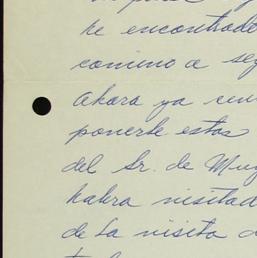 he encontrado
camino a
ahora ya
ponerle estas
del Sr. de
habra visitad
de la visita